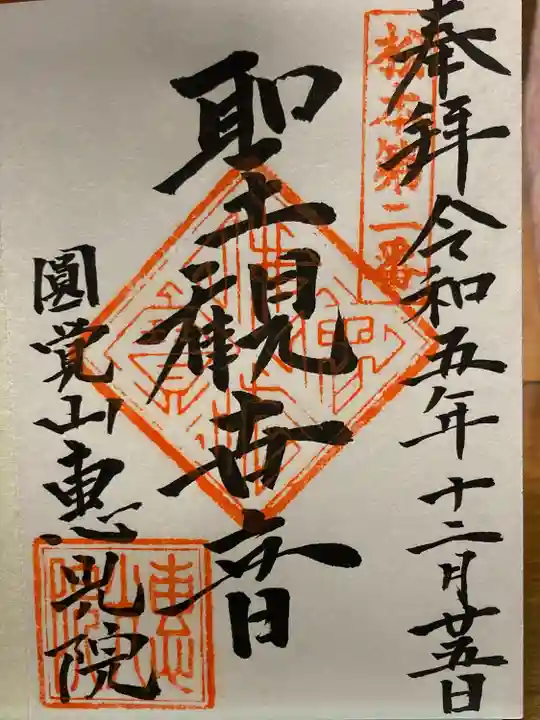 奉拝 令和五年十二月廿五日
第二番
聖観世音
圓覚山 恵光院